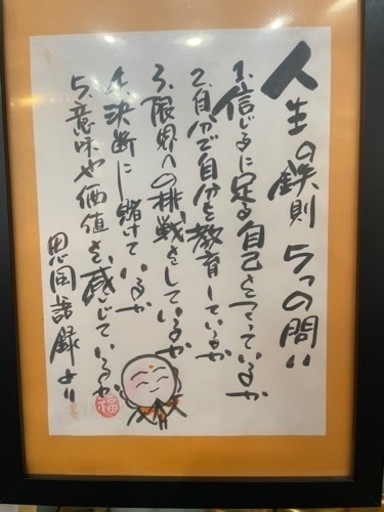 人生の鉄則 5つの問い
1.信じるに足る自己をつくっているか
2.自分で自分を教育しているか
3.限界への挑戦をしているか
4.決断に賭けているか
5.意味や価値を感じているか
思風語録より
福